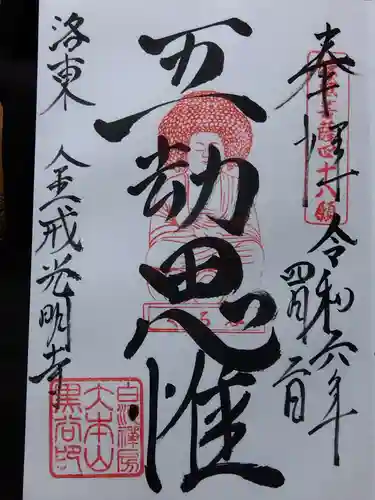 奉拝
令和六年
四月二日
五劫思惟
洛東 金戒光明寺
白河禅房
大本山
黒谷